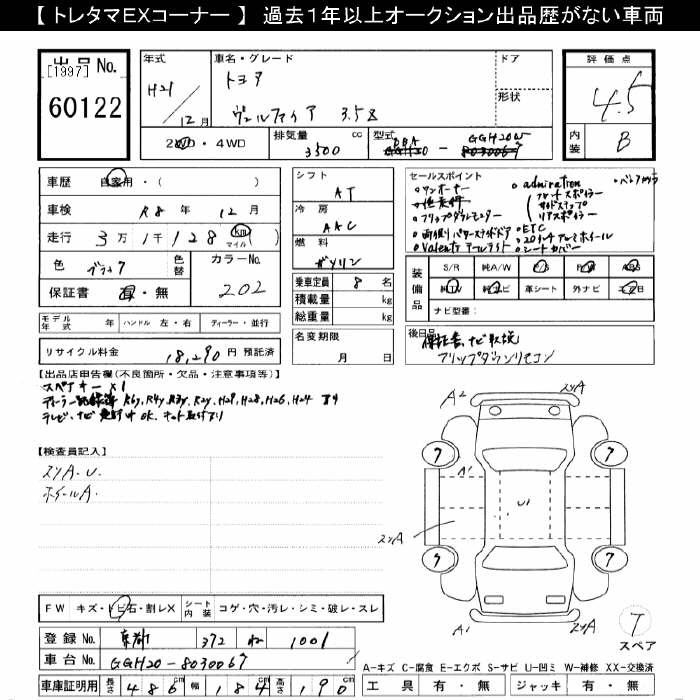 【 トレタマEXコーナー 】 過去１年以上オークション出品歴がない車両
出品 No.
[1997]
60122
年式
H21
12月
車名・グレード
トヨタ
ヴェルファイア 3.5Z
ドア
形状
評価点
4.5
内装
B
2WD・4WD
排気量
3500 cc
型式
DBA
GGH20W
車歴 自家用・( )
車検 R8年 12月
走行 3万1千128 km マイル
色 ブラック
色替
カラーNo. 202
保証書 有・無
モデル年式 年 ハンドル 左・右 ディーラー・並行
リサイクル料金 18,290円 預託済
シフト
AT
冷房
AAC
燃料
ガソリン
乗車定員 8名
積載量 kg
総重量 kg
名変期限
月 日
セールスポイント
・ワンオーナー
・フリップダウンモニター
・両側パワースライドドア
・Valentiテールライト
・admiration
フロントスポイラー
サイドステップ
リアスポイラー
・ETC
・20インチアルミホイール
・シートカバー
・バックカメラ
装備品
S/R 純A/W P/S P/W ABS
純TV 純ナビ 革シート 外ナビ
ナビ型番:
後日品
保証書、ナビ取説
フリップダウンリモコン
【出品店申告欄(不良箇所・欠品・注意事項等)】
スペアキー×1
ディーラー記録簿 R6y, R4y, R3y, R2y, H29, H28, H26, H24
【検査員記入】
スリA. U.
ホイールA.
A2
スリA
7
7
A1
U1
スリA
7
7
A1
スリA
T
スペア
FW キズ・トビ石・割レX
シート内装 コゲ・穴・汚レ・シミ・破レ・スレ
登録 No. 京都 372 ね 1001
車台 No. GGH20-8030067
車庫証明用 長さ 486cm 幅 184cm 高さ 190cm
A-キズ C-腐食 E-エクボ S-サビ U-凹ミ W-補修 XX-交換済
工具 有・無 ジャッキ 有・無